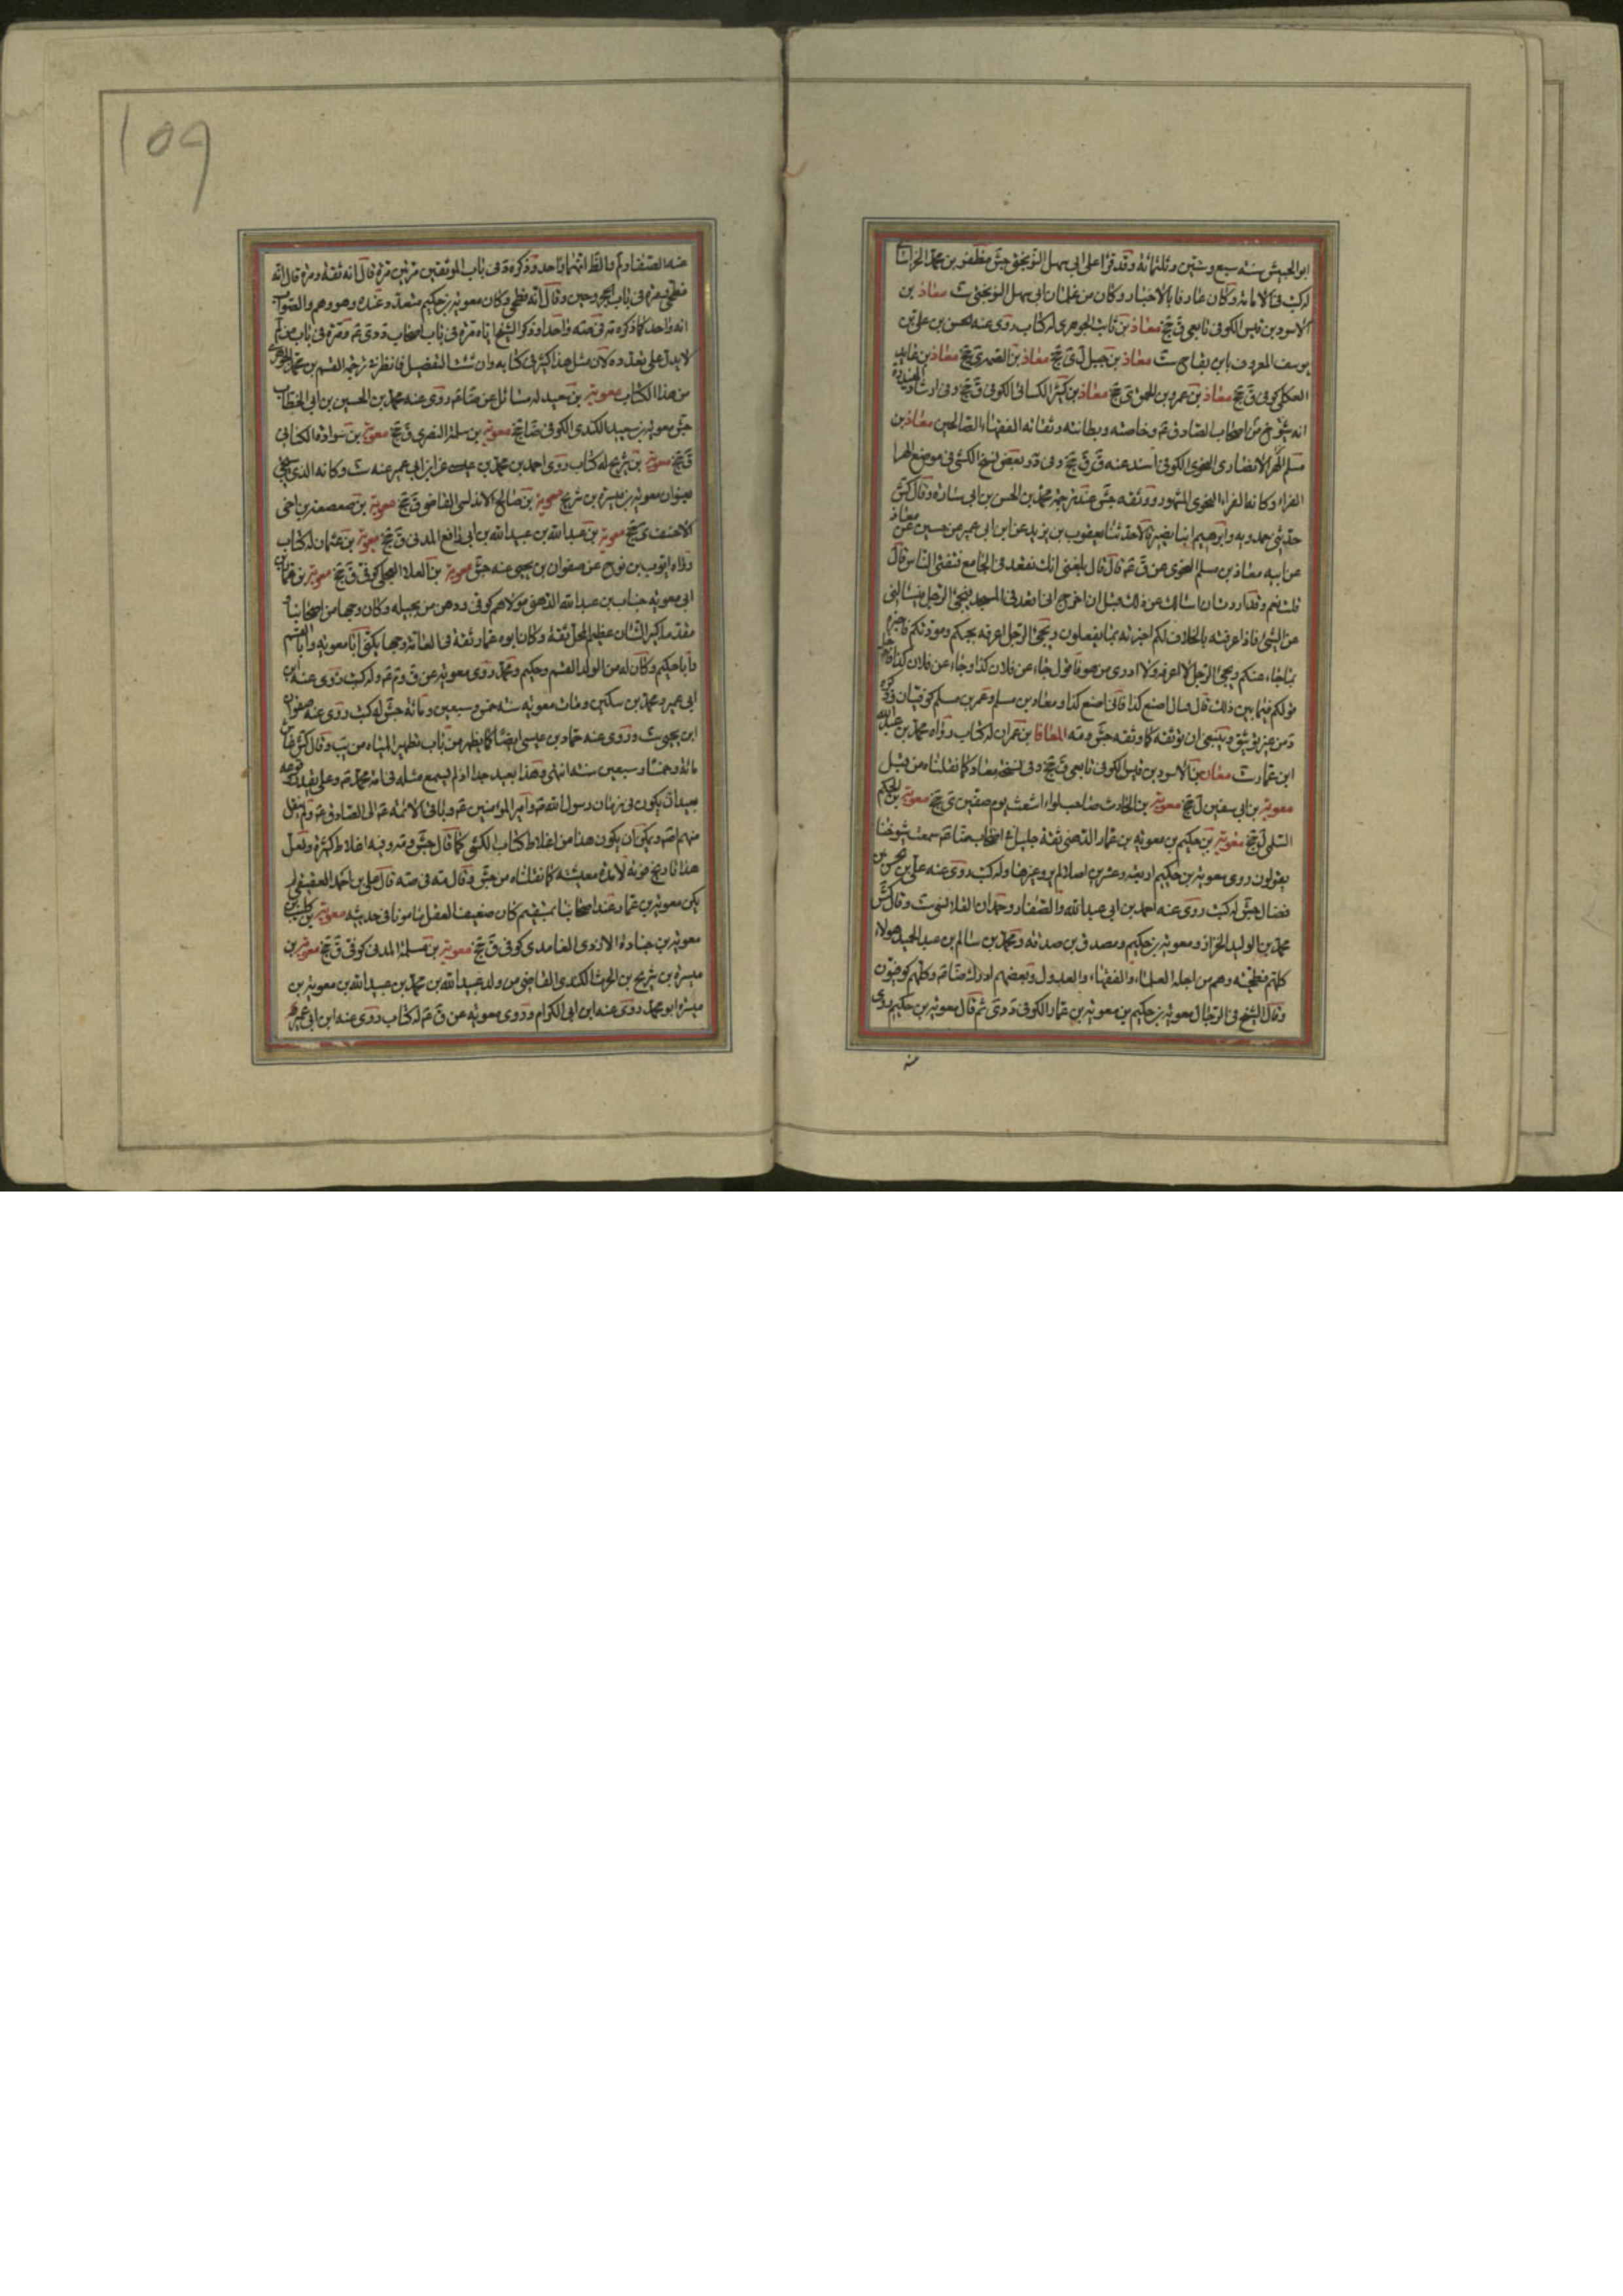 ابو الجيش سنه سبع وستين وثلثمائة وقد قرا على ابى سهل النوبختى جش مظفر بن محمد الخراسانى
له كتب فى الامامة وكان عارفا بالاخبار وكان من غلمان ابى سهل النوبختى ست معاذ بن
الاسود بن قيس الكوفى تابعى ق جخ معاذ بن ثابت الجوهرى له كتاب روى عنه الحسن بن على بن
يوسف المعروف بابن بقاح ست معاذ بن جبل ل ى جخ معاذ بن الصمه ى جخ معاذ بن عايذ
العكلى كوفى ق جخ معاذ بن عمرو بن الجموح ى جخ معاذ بن كثير الكسائى الكوفى ق جخ وفى ارشاد المفيد
انه من شيوخ اصحاب الصادق ع وخاصته وبطانته وثقاته الفقهاء الصالحين معاذ بن
مسلم الهرا الانصارى النحوى الكوفى اسند عنه ق ق جخ وفى د وبعض نسخ الكشى فى موضع الهرا
الفراء وكانه الفراء النحوى المشهور ووثقه جش عند ترجمة محمد بن الحسن بن ابى ساره وقال كش
حدثنى حمدويه وابرهيم ابنا نصير قالا حدثنا يعقوب بن يزيد عن ابن ابى عمير عن حسين بن معاذ
عن ابيه معاذ بن مسلم النحوى عن ق ع قال قال بلغنى انك تقعد فى الجامع فتفتى الناس قال
قلت نعم وقد اردت ان اسالك عن ذلك قبل ان اخرج انى اقعد فى المسجد فيجئ الرجل فيسالنى
عن الشئ فاذا عرفته بالخلاف لكم اخبرته بما يفعلون ويجئ الرجل اعرفه بحبكم ومودتكم فاخبره
بما جاء عنكم ويجئ الرجل لا اعرفه ولا ادرى من هو فاقول جاء عن فلان كذا وجاء عن فلان كذا فادخل
قولكم فيما بين ذلك قال فقال اصنع كذا فانى اصنع كذا ومعاذ بن مسلم وعمر بن مسلم كوفيان
من غير توثيق وينبغى ان يوثقه كما وثقه جش ومه المعافا بن عمران له كتاب رواه محمد بن عبدالله
ابن عمار ست معان بن الاسود بن قيس الكوفى تابعى ق جخ وفى نسخة معاذ كما نقلناه من قبل
معوية بن ابى سفين ل جخ معوية بن الحارث صاحب لواء الاشتر يوم صفين ى جخ معوية بن الحكم
السلمى ل جخ معوية بن حكيم بن معوية بن عمار الدهنى ثقة جليل فى اصحاب ضا ع سمعت شيوخنا
يقولون روى معوية بن حكيم اربعة وعشرين اصلا لم يرو غيرها وله كتب روى عنه على بن الحسن بن
فضال جش له كتب روى عنه احمد بن ابى عبدالله والصفار وحمدان القلانسى ست وقال كش
محمد بن الوليد الخزاز ومعوية بن حكيم ومصدق بن صدقه ومحمد بن سالم بن عبد الحميد هولاء
كلهم فطحيه وهم من اجله العلماء والفقهاء والعدول وبعضهم ادرك ضا ع وكلهم كوفيون
وقال الشيخ فى الرجال معوية بن حكيم بن معوية بن عمار الكوفى د دى ثم قال معوية بن حكيم روى
عنه
109
عنه الصفار لم والظ انهما واحد وذكره د فى باب الموثقين مرتين مرة قال انه ثقة ومرة قال انه
فطحى ومرة فى باب المجروحين وقال انه فطحى وكان معوية بن حكيم متعدد عنده وهو وهم والصواب
انه واحد كما ذكره مه فى صه واحدا وذكر الشيخ اياه مرة فى باب اصحاب د دى ع ومرة فى باب من لم
لا يدل على تعدده لان مثل هذا كثير فى كتابه وان شئت التفصيل فانظر فى ترجمة القسم بن محمد الجوهرى
من هذا الكتاب معوية بن سعيد له مسائل عن ضا ع روى عنه محمد بن الحسين بن ابى الخطاب
جش معوية بن سعيد الكندى الكوفى ضا جخ معوية بن سلمة النصرى ق جخ معوية بن سوادة الكنانى
ق جخ معوية بن شريح له كتاب روى احمد بن محمد بن عيسى عن ابن ابى عمير عنه ست وكانه الذى سيجئ
بعنوان معوية بن ميسرة بن شريح معوية بن صالح الاندلسى القاضى ق جخ معوية بن صعصعة بن اخى
الاحنف ى جخ معوية بن عبد الله بن عبيد الله بن ابى رافع المدنى ق جخ معوية بن عثمان له كتاب
رواه ايوب بن نوح عن صفوان بن يحيى عنه جش معوية بن العلاء العجلى كوفى ق جخ معوية بن عمار بن
ابى معويه خباب بن عبد الله الدهنى مولاهم كوفى ودهن من بجيله وكان وجها من اصحابنا
مقدما كبير الشان عظيم المحل ثقة وكان ابوه عمار ثقة فى العامة وجها يكنى ابا معويه وابا القسم
وابا حكيم وكان له من الولد القسم وحكيم ومحمد روى معوية عن ق وم ع وله كتب روى عنه ابن
ابى عمير ومحمد بن سكين ومات معويه سنه خمس وسبعين ومائة جش له كتب روى عنه صفوان
ابن يحيى ست وروى عنه حماد بن عيسى ايضا كما يظهر من باب تطهير المياه من يب وقال كش عاش
مائة وخمسا وسبعين سنه انتهى وهذا بعيد جدا اذ لم يسمع مثله فى امة محمد ص وعلى تقدير
بعيد ان يكون فى زمان رسول الله ص وامير المؤمنين ع وباقى الائمة ع الى الصادق ع ولم ينقل
منهم اصلا ويمكن ان يكون هذا من اغلاط كتاب الكشى كما قال جش وفيه اغلاط كثيرة ولعل
هذا تاريخ موته لا مدة معيشته كما نقلناه من جش وقال مه فى صه قال على بن احمد العقيقى لم
يكن معوية بن عمار عند اصحابنا بمستقيم كان ضعيف العقل مامونا فى حديثه معوية بن كليب بن
معوية بن جنادة الازدى الغامدى كوفى ق جخ معوية بن مسلمة المدنى كوفى ق جخ معوية بن
ميسرة بن شريح بن الحرث الكندى القاضى من ولد عبيد الله بن محمد بن عبيد الله بن معوية بن
ميسرة ابو محمد روى عنه ابن ابى الكرام وروى معوية عن ق ع له كتاب روى عنه ابن ابى عمير